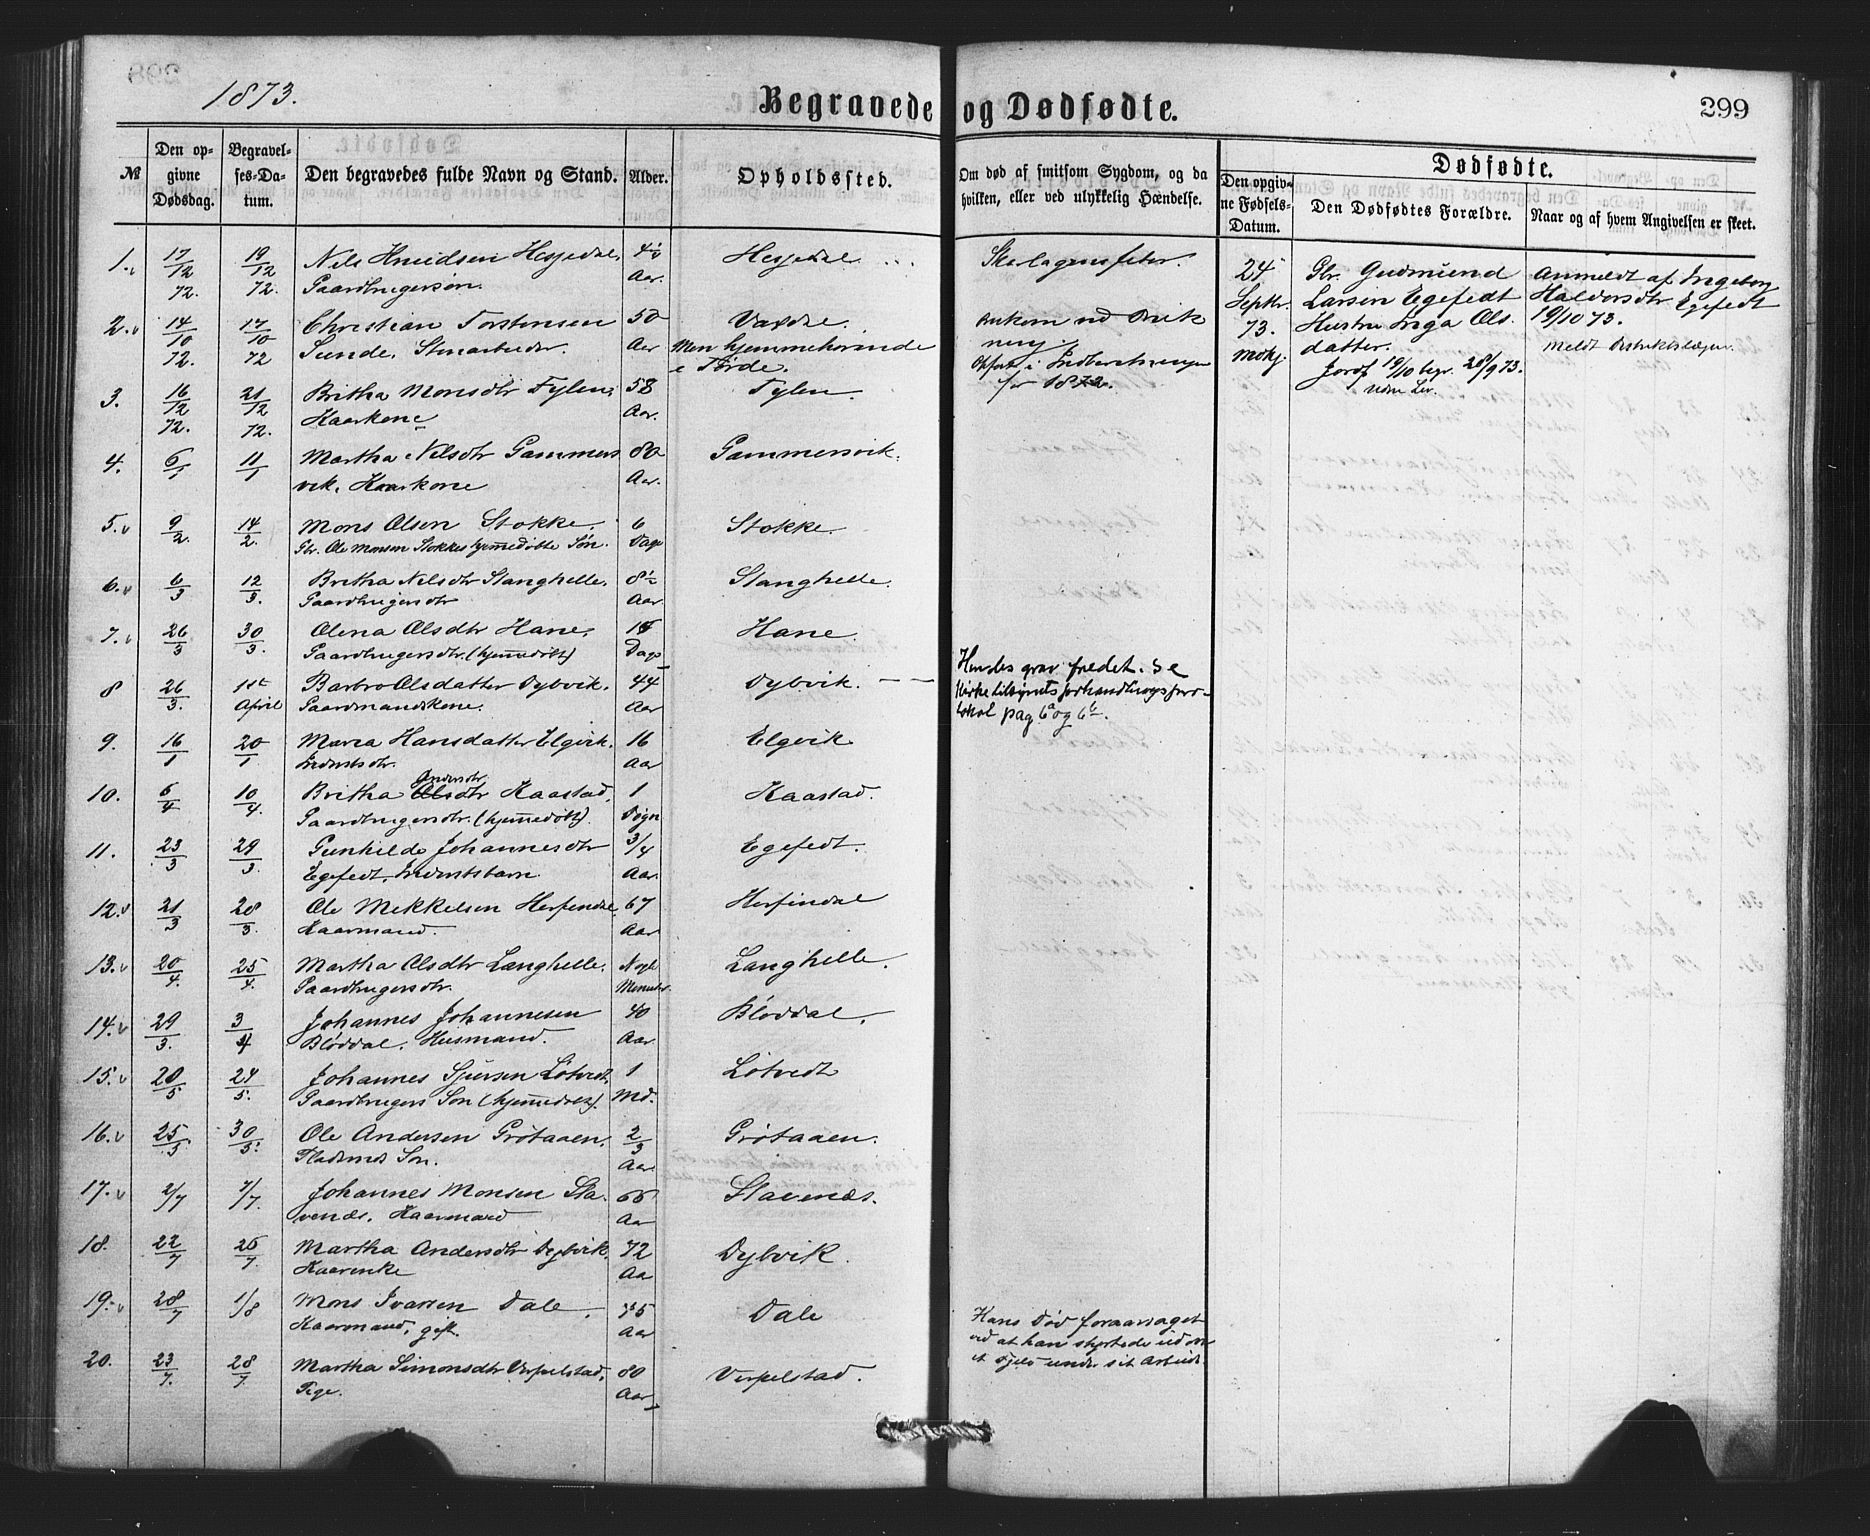 1873.
Begravede og Dødfødte.
299
№
Den opgivne Dødsdag.
Begravelses-Datum.
Den begravedes fulde Navn og Stand.
Alder.
Opholdssted.
Om død af smitsom Sygdom, og da hvilken, eller ved ulykkelig Hændelse.
Dødfødte.
Den opgivne Fødsels-Datum.
Den Dødfødtes Forældre.
Naar og af hvem Angivelsen er skeet.
1. 17/12 72. 19/12 72. Nils Knudsen Hesjedal 4½ Aar. Hesjedal Skarlagensfeber.
Gaardbrugersøn.
2. 14/10 72. 17/10 72 Christian Torstensen 50 Aar
Sunde. Stenarbeider.
Men hjemmehørende
i Førde.
for 1872.
3. 16/12 72. 21/12 72. Britha Monsdtr Fylen. 58 Aar. Fylen.
Kaarkone
4. 6/1 11/1 Martha Nilsdtr Gammers 82 Aar. Gammersvik.
vik. Kaarkone
5. 9/2. 14/2. Mons Olsen Stokke. 6 Dage Stokke.
Gbr. Ole Monsen Stokkes hjemmedøbte Søn.
6. 6/3 12/3. Britha Nilsdtr Stanghelle. 8½ Aar. Stanghelle.
Gaardbrugersdtr
7. 26/3 30/3. Olena Olsdtr Hane. Dage Hane.
Gaardbrugersdtr. (hjemmedøbt)
8 26/3. 1ste April Barbro Olsdatter Dybvik. 44 Aar Dybvik.
Gaardmandskone.
Hendes grav fredet. Se
Kirketilsynets forhandlingsproto-
kol pag 6a og 6b.
9. 16/1 20/1 Maria Hansdatter Elgvik. 16 Aar Elgvik
Inderstsdtr.
10. 6/4 10/4. Britha Andersdtr Kaastad. 1 Døgn Kaastad.
Gaardbrugersdtr. (hjemmedøbt).
11. 23/3 29/3. Gunhilde Johannesdtr 3/4 Aar. Egefedt.
Egefedt. Inderstsbarn.
12. 21/3 28/3. Ole Mikkelsen Herfindal 67 Aar Herfindal
Kaarmand.
13. 20/4. 25/4. Martha Olsdtr Langhelle. Nogle Minuter. Langhelle.
Gaardbrugersdtr.
14. 29/3. 3/4 Johannes Johannesen 40 Aar. Bløddal.
Bløddal. Husmand.
15. 20/5 24/5. Johannes Sjursen Løtvedt 1 Md. Løtvedt
Gaardbrugers Søn
16. 25/5. 30/5. Ole Andersen Grøtaaen. 2/3 Aar. Grøtaaen.
Pladsmds Søn.
17. 2/7 7/7. Johannes Monsen Sta- 66 Aar Stavenæs.
venæs. Kaarmand
18. 22/7 26/7. Martha Andersdtr Dybvik. 72 Aa Dybvik.
Kaarenke
19. 28/7 1/8 Mons Ivarsen Dale. 75 Aar Dale
Kaarmand, gift.
Hans Død foraarsaget
ved at han styrtede ud over
et Fjeld under sit Arbeide.
20. 23/7. 28/7 Martha Simonsdtr Verpelstad. 80 Aar Verpelstad.
Pige.
24 Septbr. 73. Gbr. Gudmund
Larsen Egefedt
Hustru Inga Ols-
datter.
Jordf 19/10 begr. 28/9 73.
Anmeldt af Ingeborg
Haldorsdtr Egefedt
19/10 73.
Meldt Distriktslægen.